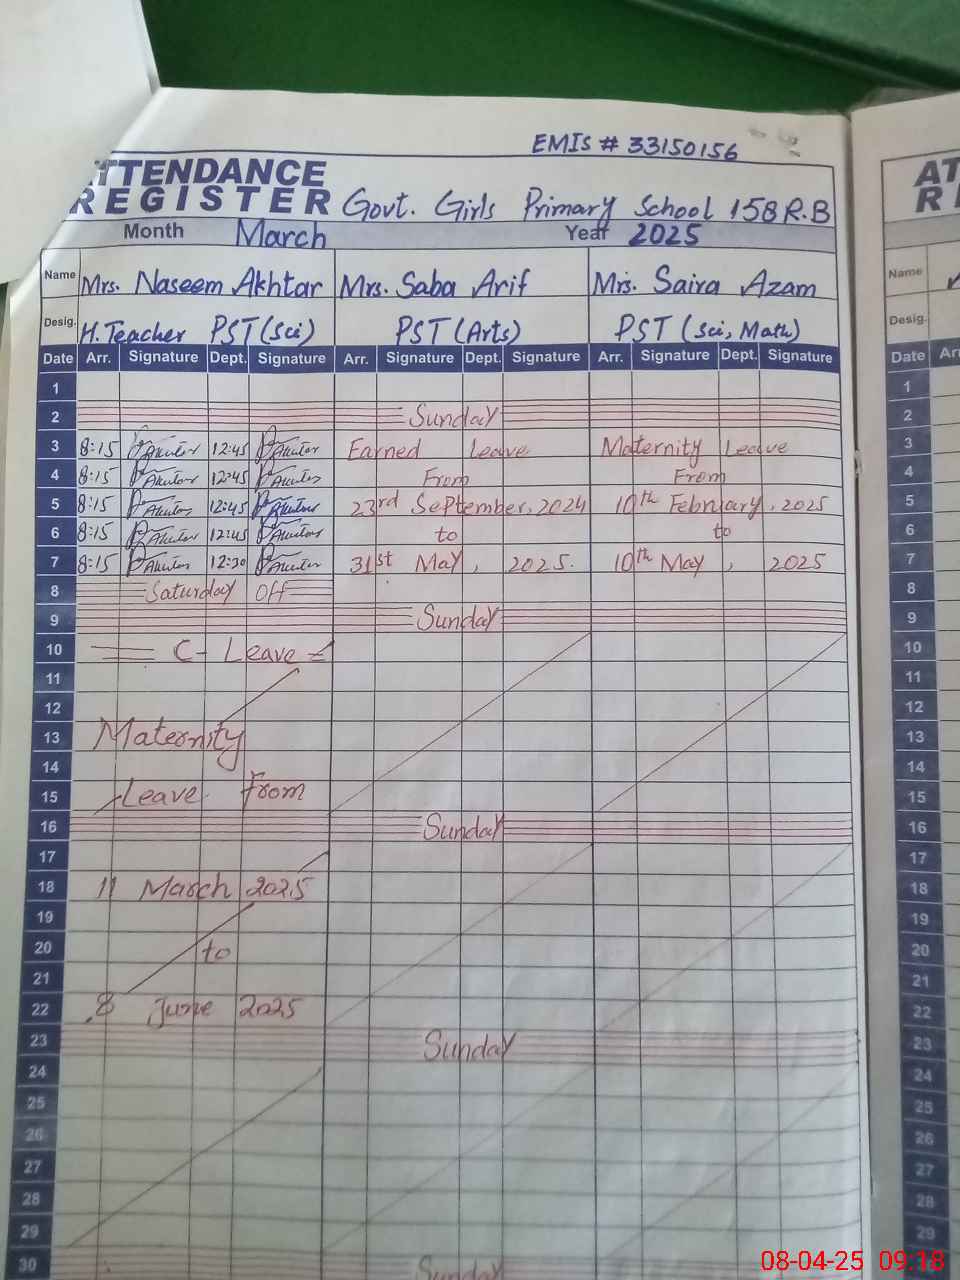 EMIS # 33150156
ATTENDANCE
REGISTER Govt. Girls Primary School 158 R.B
Month March Year 2025
Name Mrs. Naseem Akhtar Mrs. Saba Arif Mrs. Saira Azam
Desig. H. Teacher PST (Sci) PST (Arts) PST (Sci, Math)
Date Arr. Signature Dept. Signature Arr. Signature Dept. Signature Arr. Signature Dept. Signature
1
2 Sunday
3 8:15 12:45 Earned Leave Maternity Leave
4 8:15 12:45 From From
5 8:15 12:45 23rd September, 2024 10th February, 2025
6 8:15 12:45 to to
7 8:15 12:30 31st May, 2025. 10th May, 2025
8 Saturday Off
9 Sunday
10 C- Leave
11
12
13 Maternity
14
15 Leave From
16 Sunday
17
18 11 March 2025
19
20 to
21
22 8 June 2025
23 Sunday
24
25
26
27
28
29
30 Sunday
AT
RE
Name
Desig.
Date Arr
1
2
3
4
5
6
7
8
9
10
11
12
13
14
15
16
17
18
19
20
21
22
23
24
25
26
27
28
29
08-04-25 09:18